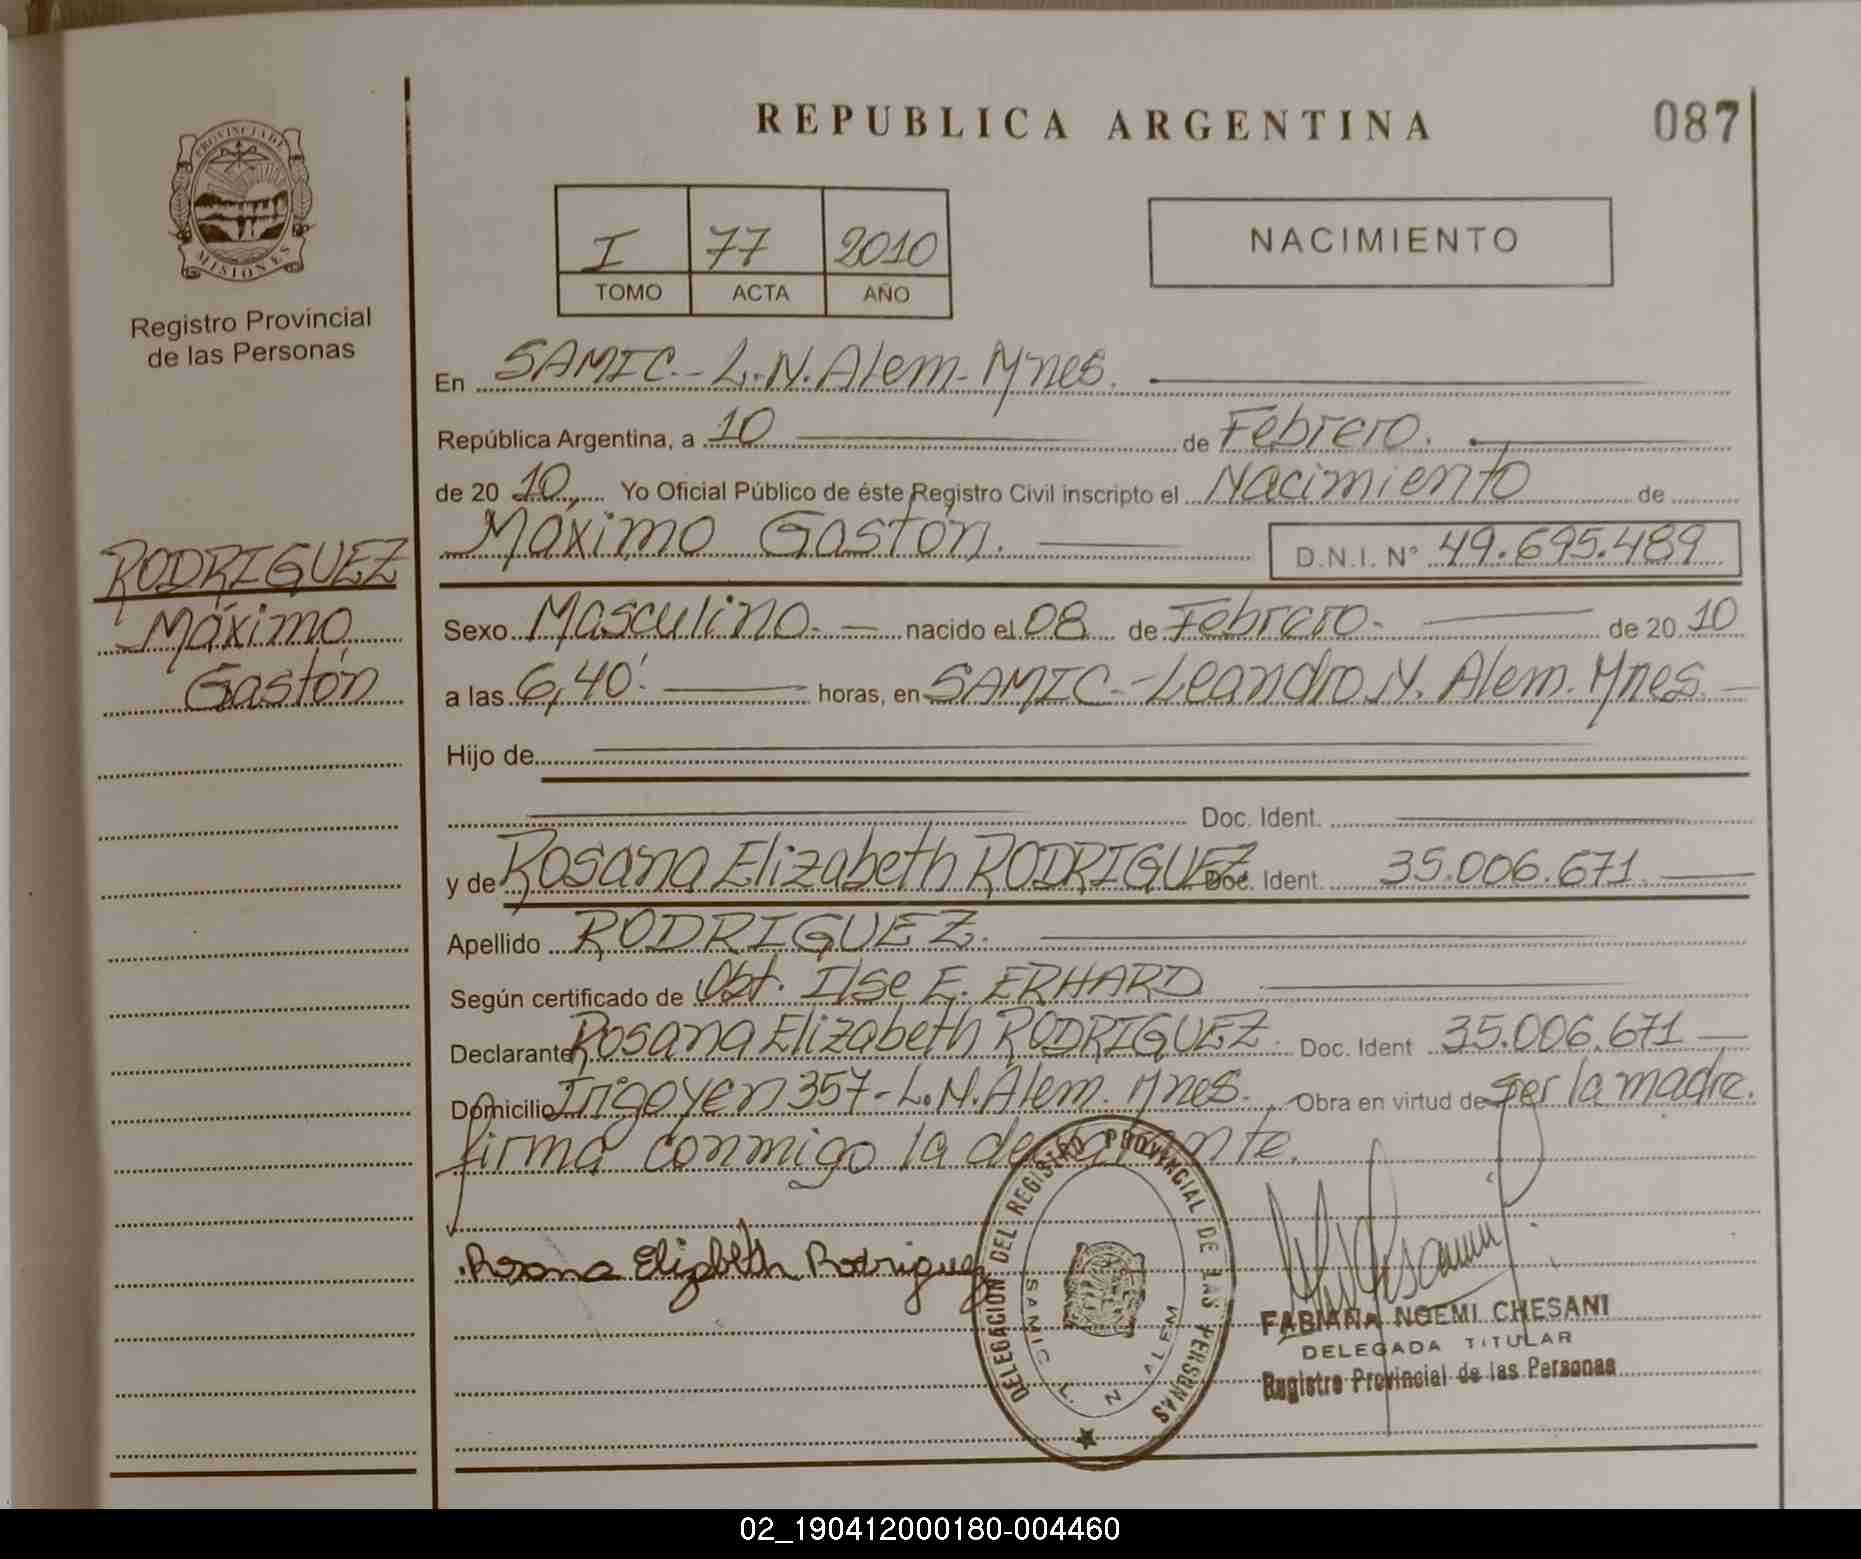 REPUBLICA ARGENTINA
087
PROVINCIA DE
MISIONES
Registro Provincial
de las Personas
I 77 2010
TOMO ACTA AÑO
NACIMIENTO
En SAMIC.- L.N. Alem- Mnes.
República Argentina, a 10 de Febrero.
de 20 10 Yo Oficial Público de éste Registro Civil inscripto el Nacimiento de
Máximo Gastón. D.N.I. N° 49.695.489
RODRIGUEZ
Máximo
Gastón
Sexo Masculino. nacido el 08 de Febrero. de 20 10
a las 6,40'. horas, en SAMIC.- Leandro N. Alem. Mnes.
Hijo de
Doc. Ident.
y de Rosana Elizabeth RODRIGUEZ Doc. Ident. 35.006.671
Apellido RODRIGUEZ.
Según certificado de Obt. Ilse E. ERHARD
Declarante Rosana Elizabeth RODRIGUEZ. Doc. Ident 35.006.671
Domicilio Irigoyen 357- L.N. Alem. Mnes. Obra en virtud de ser la madre.
firma conmigo la declarante.
Rosana Elizabeth Rodriguez
DELEGACION DEL REGISTRO PROVINCIAL DE LAS PERSONAS
SAMIC L. N ALEM
FABIANA NOEMI CHESANI
DELEGADA TITULAR
Registro Provincial de las Personas
02_190412000180-004460